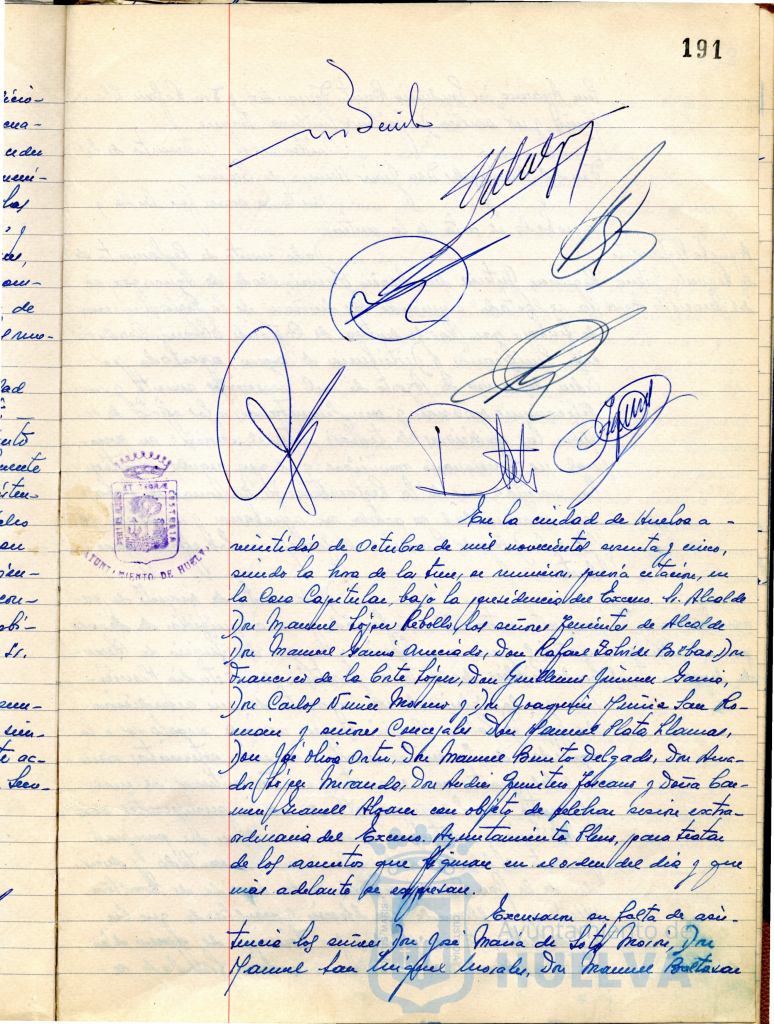 191
En la ciudad de Huelva a
veintidós de Octubre de mil novecientos setenta y cinco,
siendo la hora de la trece, se reunieron, previa citación, en
la Casa Capitular, bajo la presidencia del Excmo. Sr. Alcalde
Don Manuel López Rebollo, los señores Tenientes de Alcalde
Don Manuel García Don Rafael Bilbao, Don
Francisco de la Corte López, Don Guillermo Jiménez García,
Don Carlos Núñez Moreno y Don Joaquín San Ro-
mán y señores Concejales Don Manuel Plata Llamas,
Don José Oliva Don Manuel Benito Delgado, Don Ama-
dor López Miranda, Don Andrés Toscano y Doña Car-
men Alguer con objeto de celebrar sesión extra-
ordinaria del Excmo. Ayuntamiento Pleno, para tratar
de los asuntos que figuran en el orden del día y que
más adelante se expresan.
Excusaron su falta de asis-
tencia los señores Don José María de Soto Morón, Don
Manuel San Miguel Morales, Don Manuel Baltasar
AYUNTAMIENTO DE HUELVA
Ayuntamiento de
HUELVA